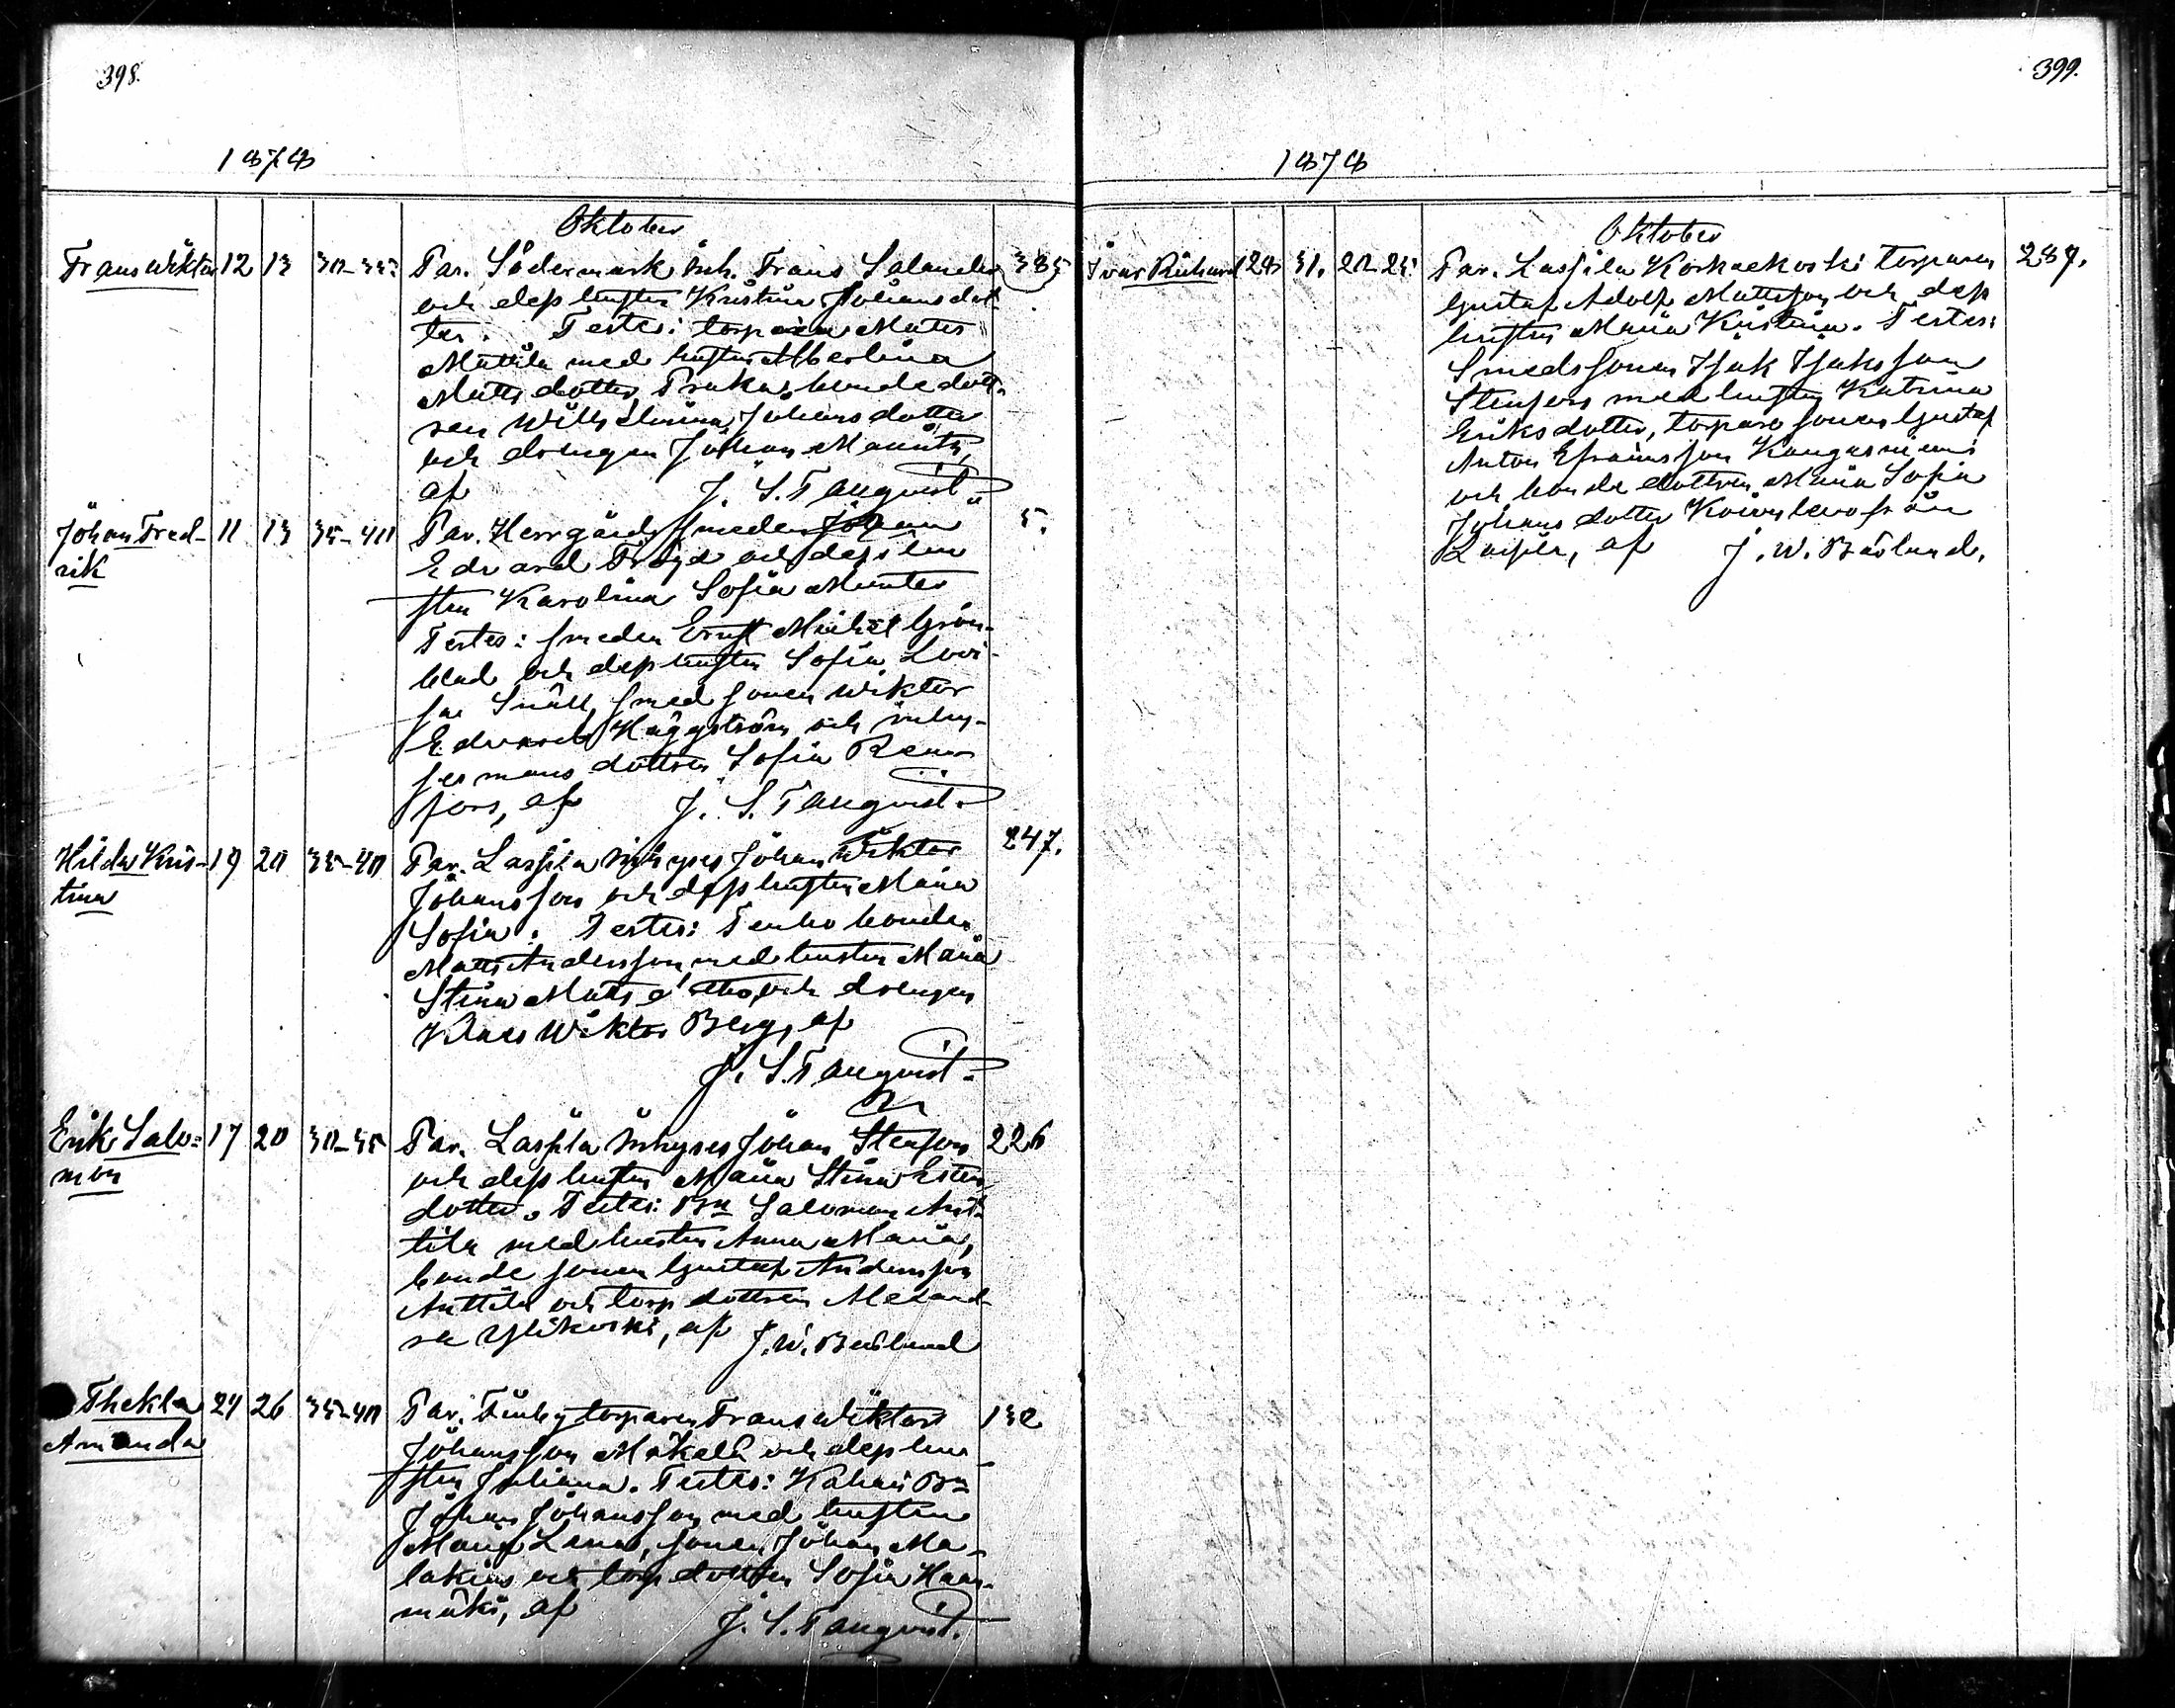 398.
1878
Oktober
Frans Wiktor 12 13 30-35 Par. Södermark Inh. Frans Salander 385
och dess hustru Kristina Johansdot-
ter. Testes: torparen Matts
Mattila med hustru Albertina
Mattsdotter, bondedott-
ren Wilhelmina Johansdotter
och drengen Johan
af J. S. Tanqvist.
Johan Fred- 11 13 35-40 Par. Herrgårds smeden Johan 5.
rik Edvard Fröjd och dess hu-
stru Karolina Sofia Munter
Testes: smeden Ernst Mickel Grön-
blad och dess hustru Sofia Lovi-
sa Snäll, smedsonen Wiktor
Edvard Häggström och inhy-
sesmans dottren Sofia Ren-
fors, af J. S. Tanqvist.
Hilda Kris- 19 20 35-40 Par. Lassila Inhyses Johan Wiktor 247.
tina Johansson och dess hustru Maria
Sofia. Testes: bonden
Matts Andersson med hustru Maria
Stina Matts dtr, och drengen
Klaes Wiktor Berg, af
J. S. Tanqvist.
Erik Salo- 17 20 30-35 Par. Lassila Inhyses Johan Stenfors 226
mon och dess hustru Maria Stina
dotter. Testes: Bn Salomon Ant-
tila med hustru Anna Maria,
bondesonen Gustaf Andersson
Anttila och torp. dottren Alexand-
ra Ylikoski, af J. W. Bäslund
Thekla 24 26 35-40 Par. Finby torparen Frans Wiktor 132
Amanda Johansson Mäkelä och dess hu-
stru Juliana. Testes: Bn
Johan Johansson med hustru
Maria Lena, sonen Johan Ma-
lakias och torp. dottren Sofia
mäki, af J. S. Tanqvist.
399.
1878
Oktober
Ivar Richard 28 31. 20-25 Par. Lassila Koskaekoski torparen 287.
Gustaf Adolf Mattsson och dess
hustru Maria Kristina. Testes:
Smedssonen Isak Isaksson
Stenfors med hustru Katrina
Eriksdotter, torparesonen Gustaf
Anton Efraimsson Kangasniemi
och bondedottren Maria Sofia
Johansdotter från
Lassila, af J. W. Bäslund.